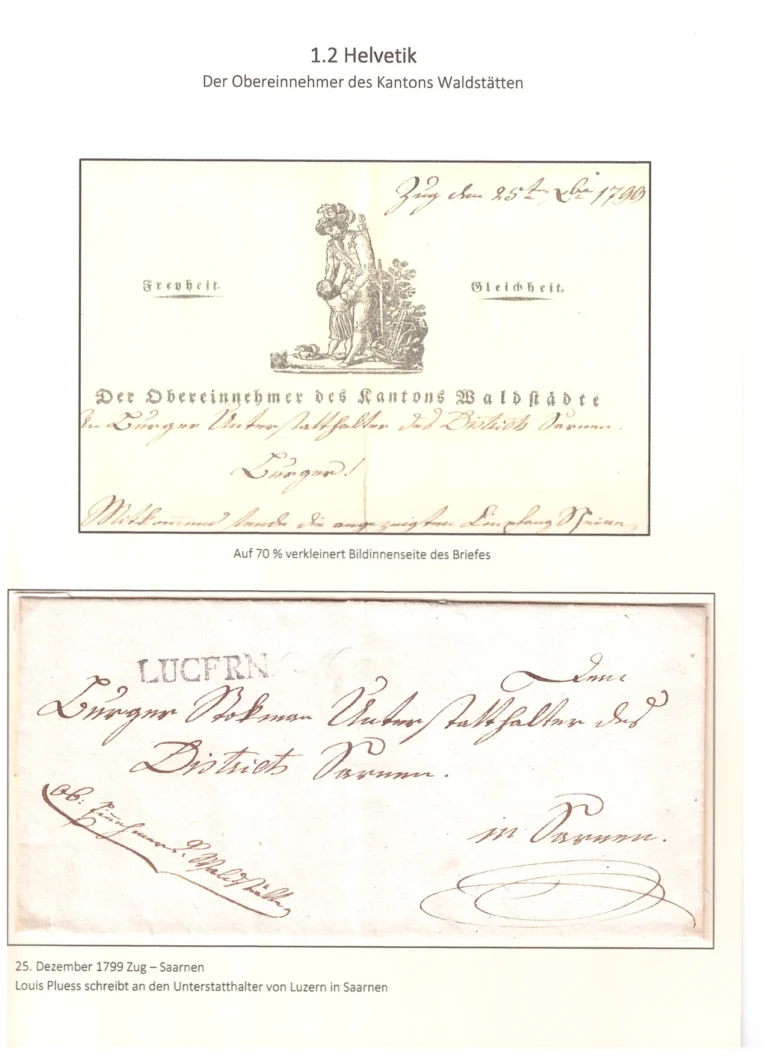 1.2 Helvetik
Der Obereinnehmer des Kantons Waldstätten
Zug den 25ten Xbre 1799
Freyheit.
Gleichheit.
Der Obereinnehmer des Kantons Waldstädte
An Bürger Unterstatthalter des Districts Sarnen.
Bürger!
Mitkommend sende die angezeigten Empfang Scheine
Auf 70 % verkleinert Bildinnenseite des Briefes
LUCERN
Dem
Bürger Stokman Unterstatthalter des
Districts Sarnen.
in Sarnen.
Ob: Einnehmer v. Waldstätten
25. Dezember 1799 Zug – Saarnen
Louis Pluess schreibt an den Unterstatthalter von Luzern in Saarnen